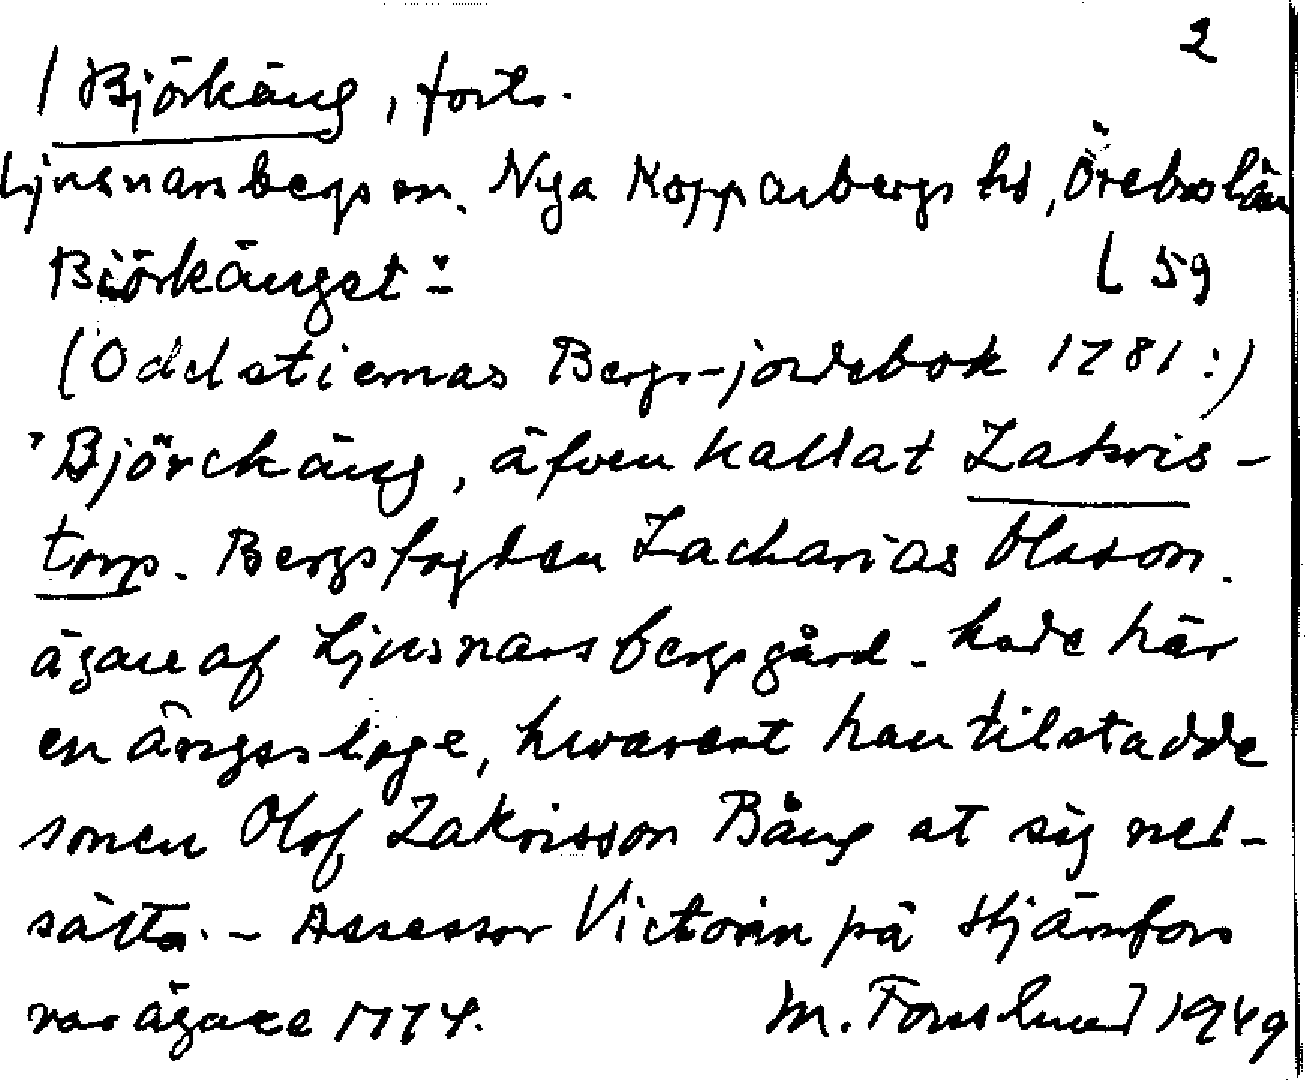 2
/ Björkäng, forts.
Ljusnarsbergs sn. Nya Kopparbergs hd, Örebro län
Björkänget L 59
(Odelstiernas Bergs-jordebok 1781:)
"Björckäng, äfven kallat Zakris-
torp. Bergsfogden Zacharias Olsson.
ägare af Ljusnarsbergsgård - hade här
en ängsloge, hwarest han tilstadde
sonen Olof Zakrisson Bång at sig ned-
sätta. - Assessor Victorin på Stjärnfors
var ägare 1774. M. Forslund 1949